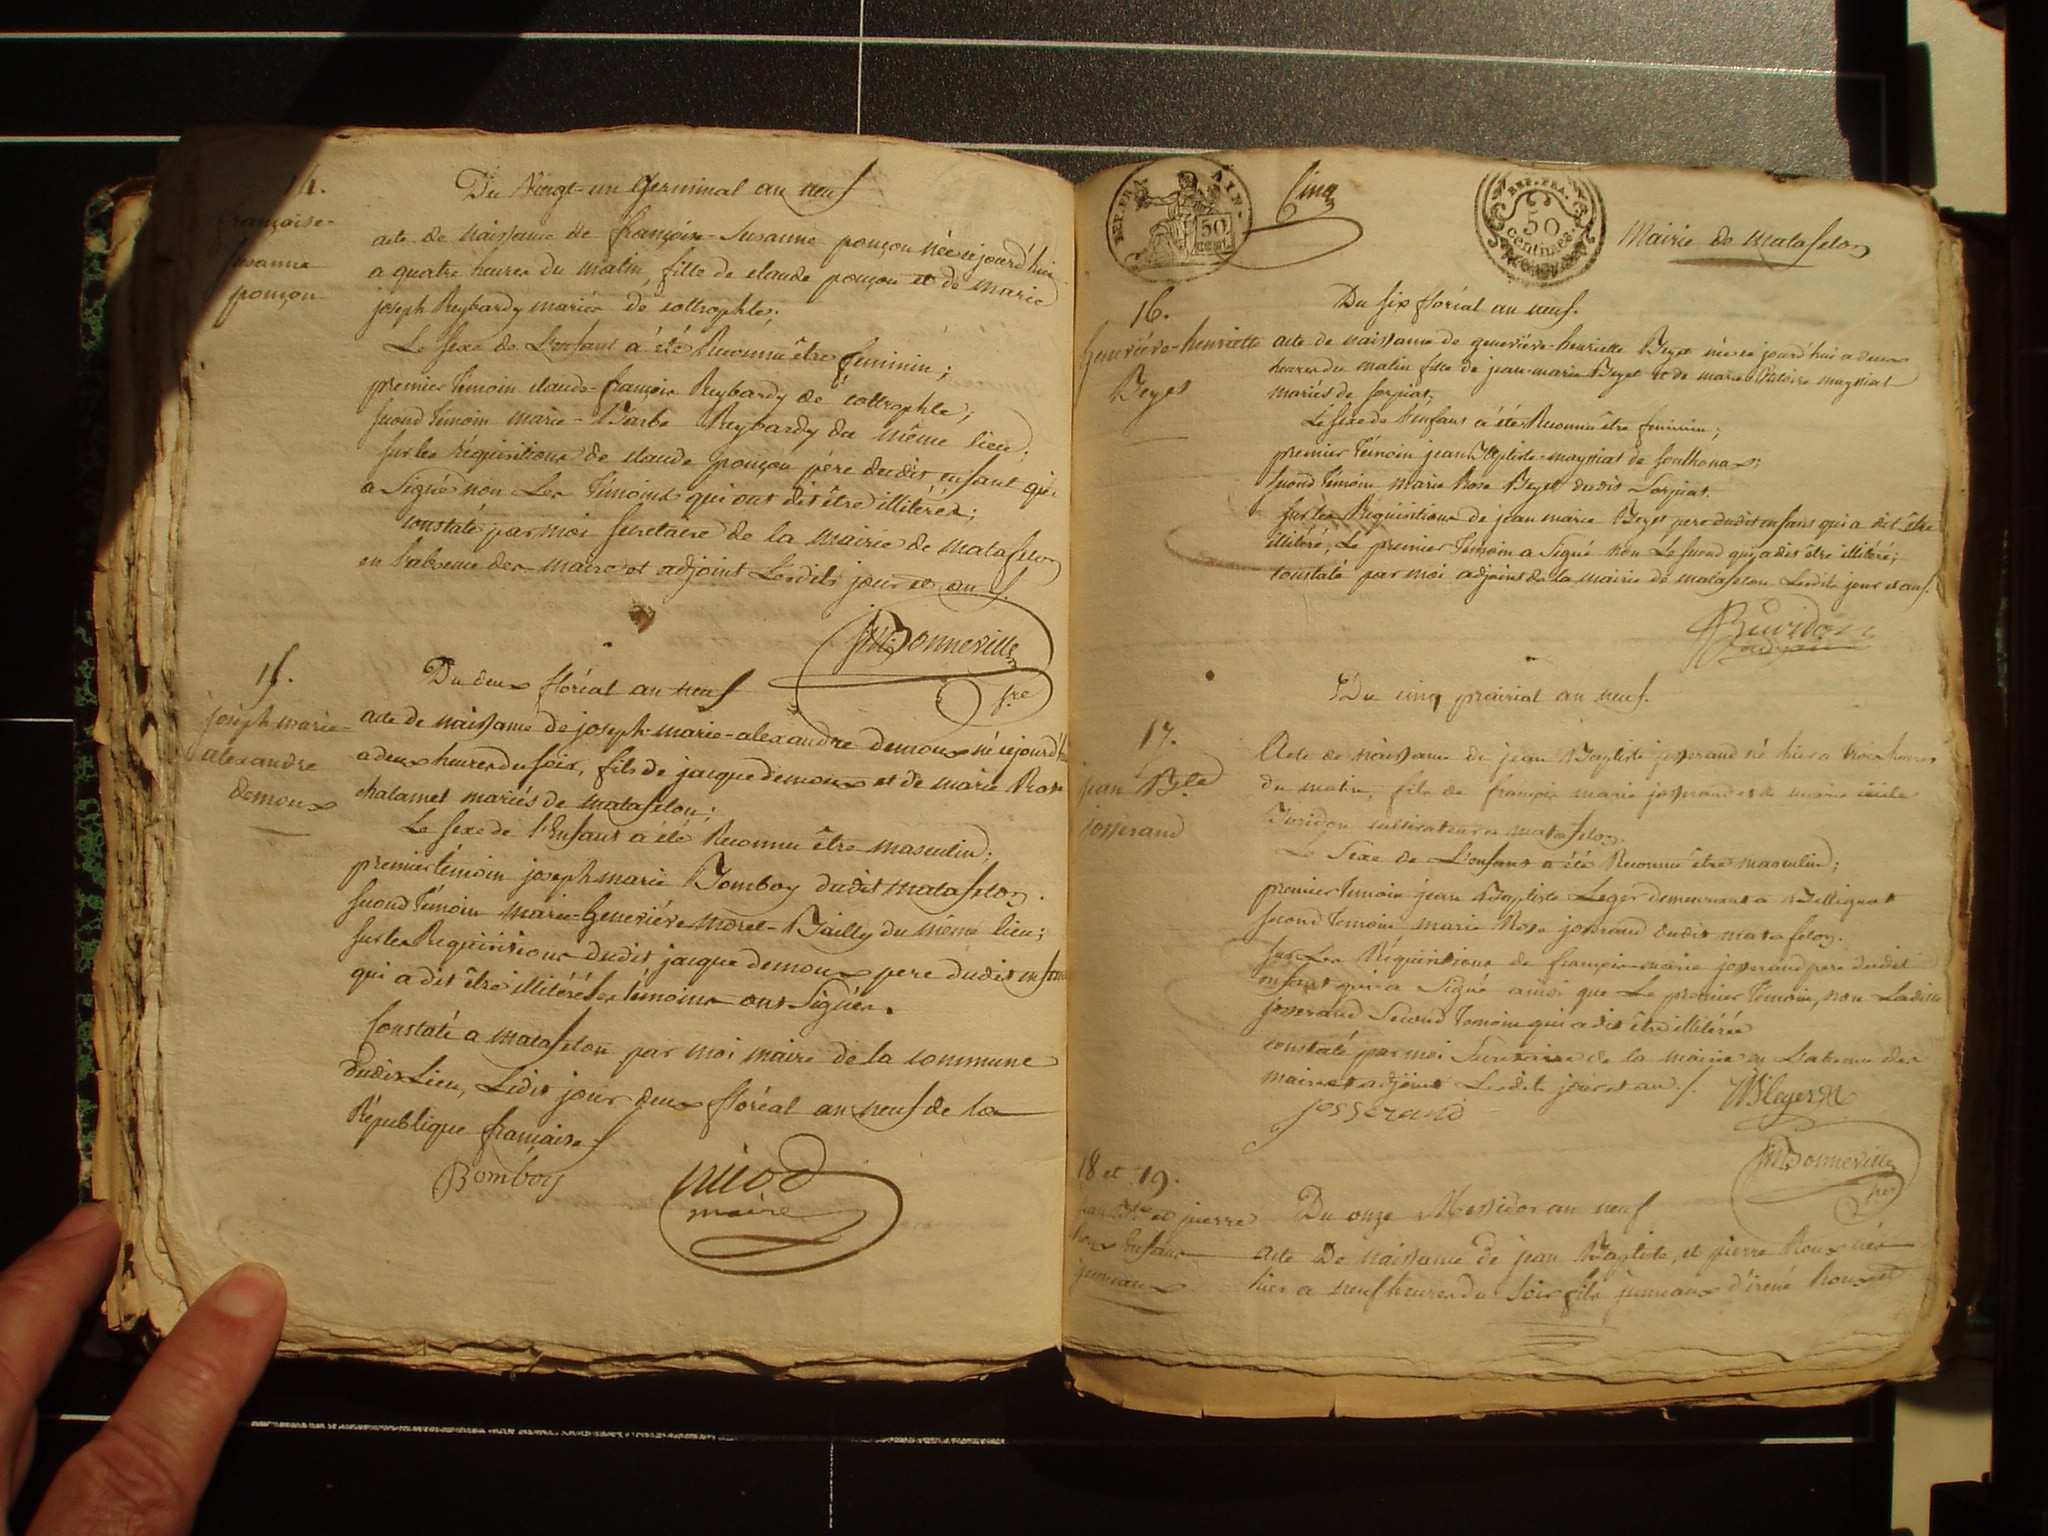 14.
françoise-
Susanne
ponçon
Du Vingt-un Germinal an neuf
acte de naissance de françoise-Susanne ponçon née cejourd'hui
a quatre heures du matin, fille de claude ponçon et de marie
joseph Reybardy mariés de collrophte;
Le sexe de L'enfant a été Reconnu être feminin;
premier témoin claude-françois Reybardy de collrophte;
second témoin marie-Barbe Reybardy du même lieu;
sur les réquisitions de claude ponçon père dudit enfant qui
a Signé non Les témoins qui ont dit être illitérés;
constaté par moi secretaire de la mairie de matafelon
en l'absence des maire et adjoint Lesdits jour et an
Bonneville
sre
15.
joseph-marie-
alexandre
demoux
Du deux floréal an neuf
acte de naissance de joseph-marie-alexandre demoux né cejourd'hui
a deux heures du soir, fils de jacque demoux et de marie Rose
chatamet mariés de matafelon;
Le sexe de l'Enfant a été Reconnu être masculin;
premier témoin joseph marie Bomboy dudit matafelon.
second témoin marie-Geneviéve morel-Bailly du même lieu;
sur les Requisitions dudit jacque demoux pere dudit enfant
qui a dit être illitéré Les témoins ont Signés.
Constaté a matafelon par moi maire de la commune
dudit Lieu, Ledit jour deux floréal an neuf de la
République française
Bomboy
nicod
maire
REP. FRA. AIN.
50
CENT.
Cinq
REP. FRA.
50
centimes.
Mairie de matafelon
16.
Geneviéve-henriette
Beyet
Du six floréal an neuf.
acte de naissance de geneviéve-henriette Beyet née cejourd'hui a deux
heures du matin fille de jean-marie Beyet et de marie Victoire maysiat
mariés de sorpiat;
Le sexe de l'enfant a été Reconnu être feminin;
premier témoin jean Baptiste maysiat de soulhonax;
second témoin marie Rose Beyet dudit Sorpiat.
sur les Réquisitions de jean marie Beyet pere dudit enfant qui a dit être
illitéré, Le premier témoin a Signé non Le second qui a dit être illitéré;
constaté par moi adjoint de la mairie de matafelon Lesdits jour et an.
adjoint
17.
jean Bte
josserand
Du cinq prairial an neuf.
Acte de naissance de jean Baptiste josserand né hier a trois heures
du matin, fils de françois marie josserand et de marie cecile
cultivateur a matafelon.
Le Sexe de L'enfant a été Reconnu être masculin;
premier temoin jean Baptiste Leger demeurant a Bellignat
second temoin marie Rose josserand dudit matafelon.
sur Les Réquisitions de françois-marie josserand pere dudit
enfant qui a Signé ainsi que Le premier témoin, non Ladite
josserand Second temoin qui a dit être illitérée
constaté par moi Secretaire de la mairie en L'absence des
maire et adjoint Lesdits jour et an.
Josserand
JB leger
Bonneville
sre
18 et 19.
jean Bte et pierre
Roux Enfans
jumeaux
Du onze Messidor an neuf
acte De naissance de jean Baptiste, et pierre Roux nés
hier a neuf heures du soir fils jumeaux d'irené Roux et